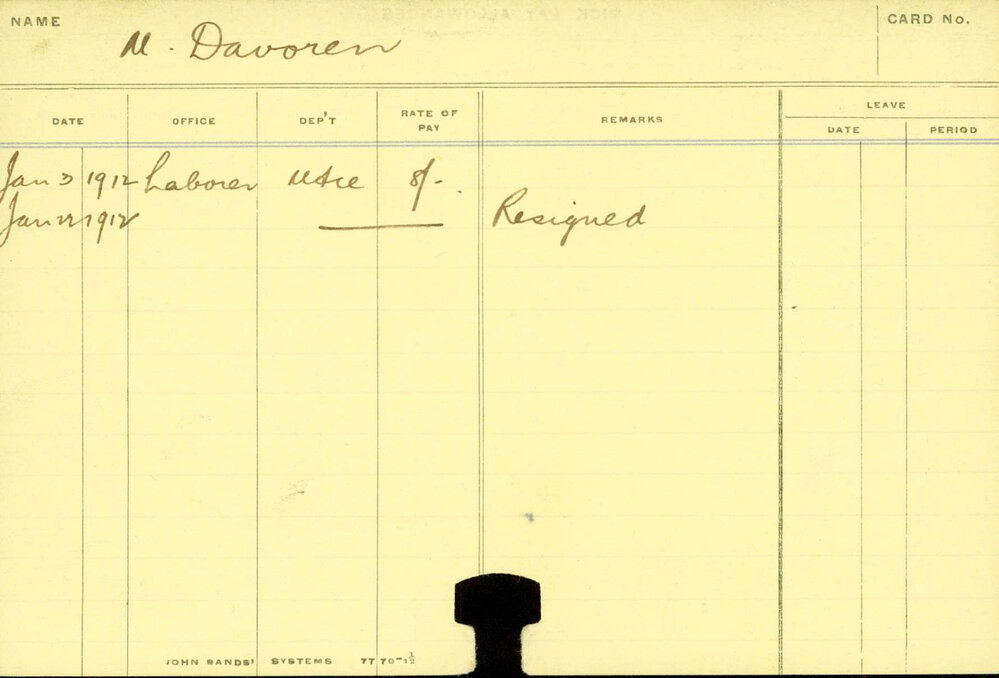 NAME
M. Davoren
CARD No.
DATE OFFICE DEP'T RATE OF PAY REMARKS LEAVE
DATE PERIOD
Jan 3 1912 Laborer Mtce 8/-
Jan 22 1912 Resigned
JOHN SANDS' SYSTEMS 7770-1½